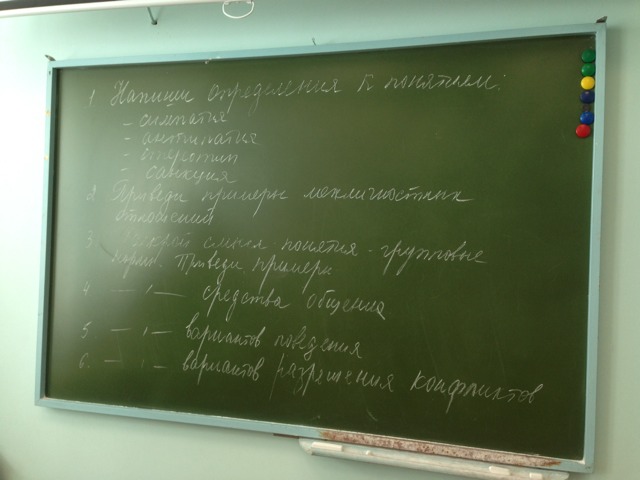 1. Напиши определения к понятием:
- симпатия
- антипатия
- стереотип
- санкция
2. Приведи примеры межличностных
отношений
3. Раскрой смысл понятия - групповые
нормы. Приведи примеры
4 — , — средства общения
5 — , — вариантов поведения
6. — , — вариантов разрешения конфликтов